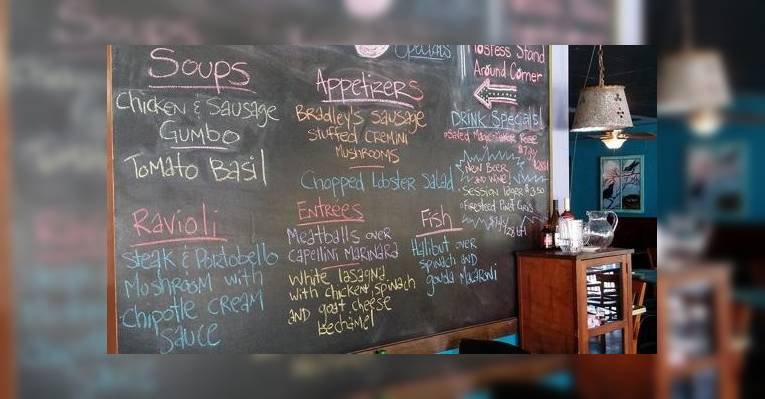 Soups
Chicken & Sausage
Gumbo
Tomato Basil
Ravioli
Steak & Portobello
Mushroom with
Chipotle cream
Sauce
Specials
Appetizers
Bradley's Sausage
stuffed cremini
Mushrooms
Chopped lobster Salad
Entrées
Meatballs over
capellini Marinara
White lasagna
with chicken, spinach
and goat cheese
bechamel
Fish
Halibut over
spinach and
gouda macaroni
Hostess Stand
Around Corner
DRINK Specials
New Beer
and wine
Session lager $3.50
Firesteed Pinot Gris